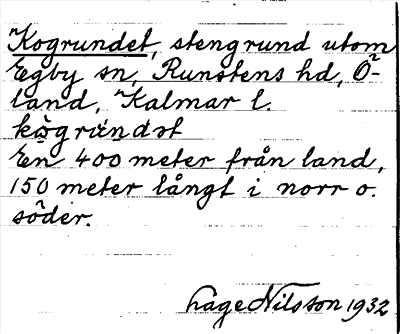 Kogrundet, stengrund utom
Egby sn, Runstens hd, Ö-
land, Kalmar l.
kògrúndət
En 400 meter från land,
150 meter långt i norr o.
söder.
Åage Nilsson 1932